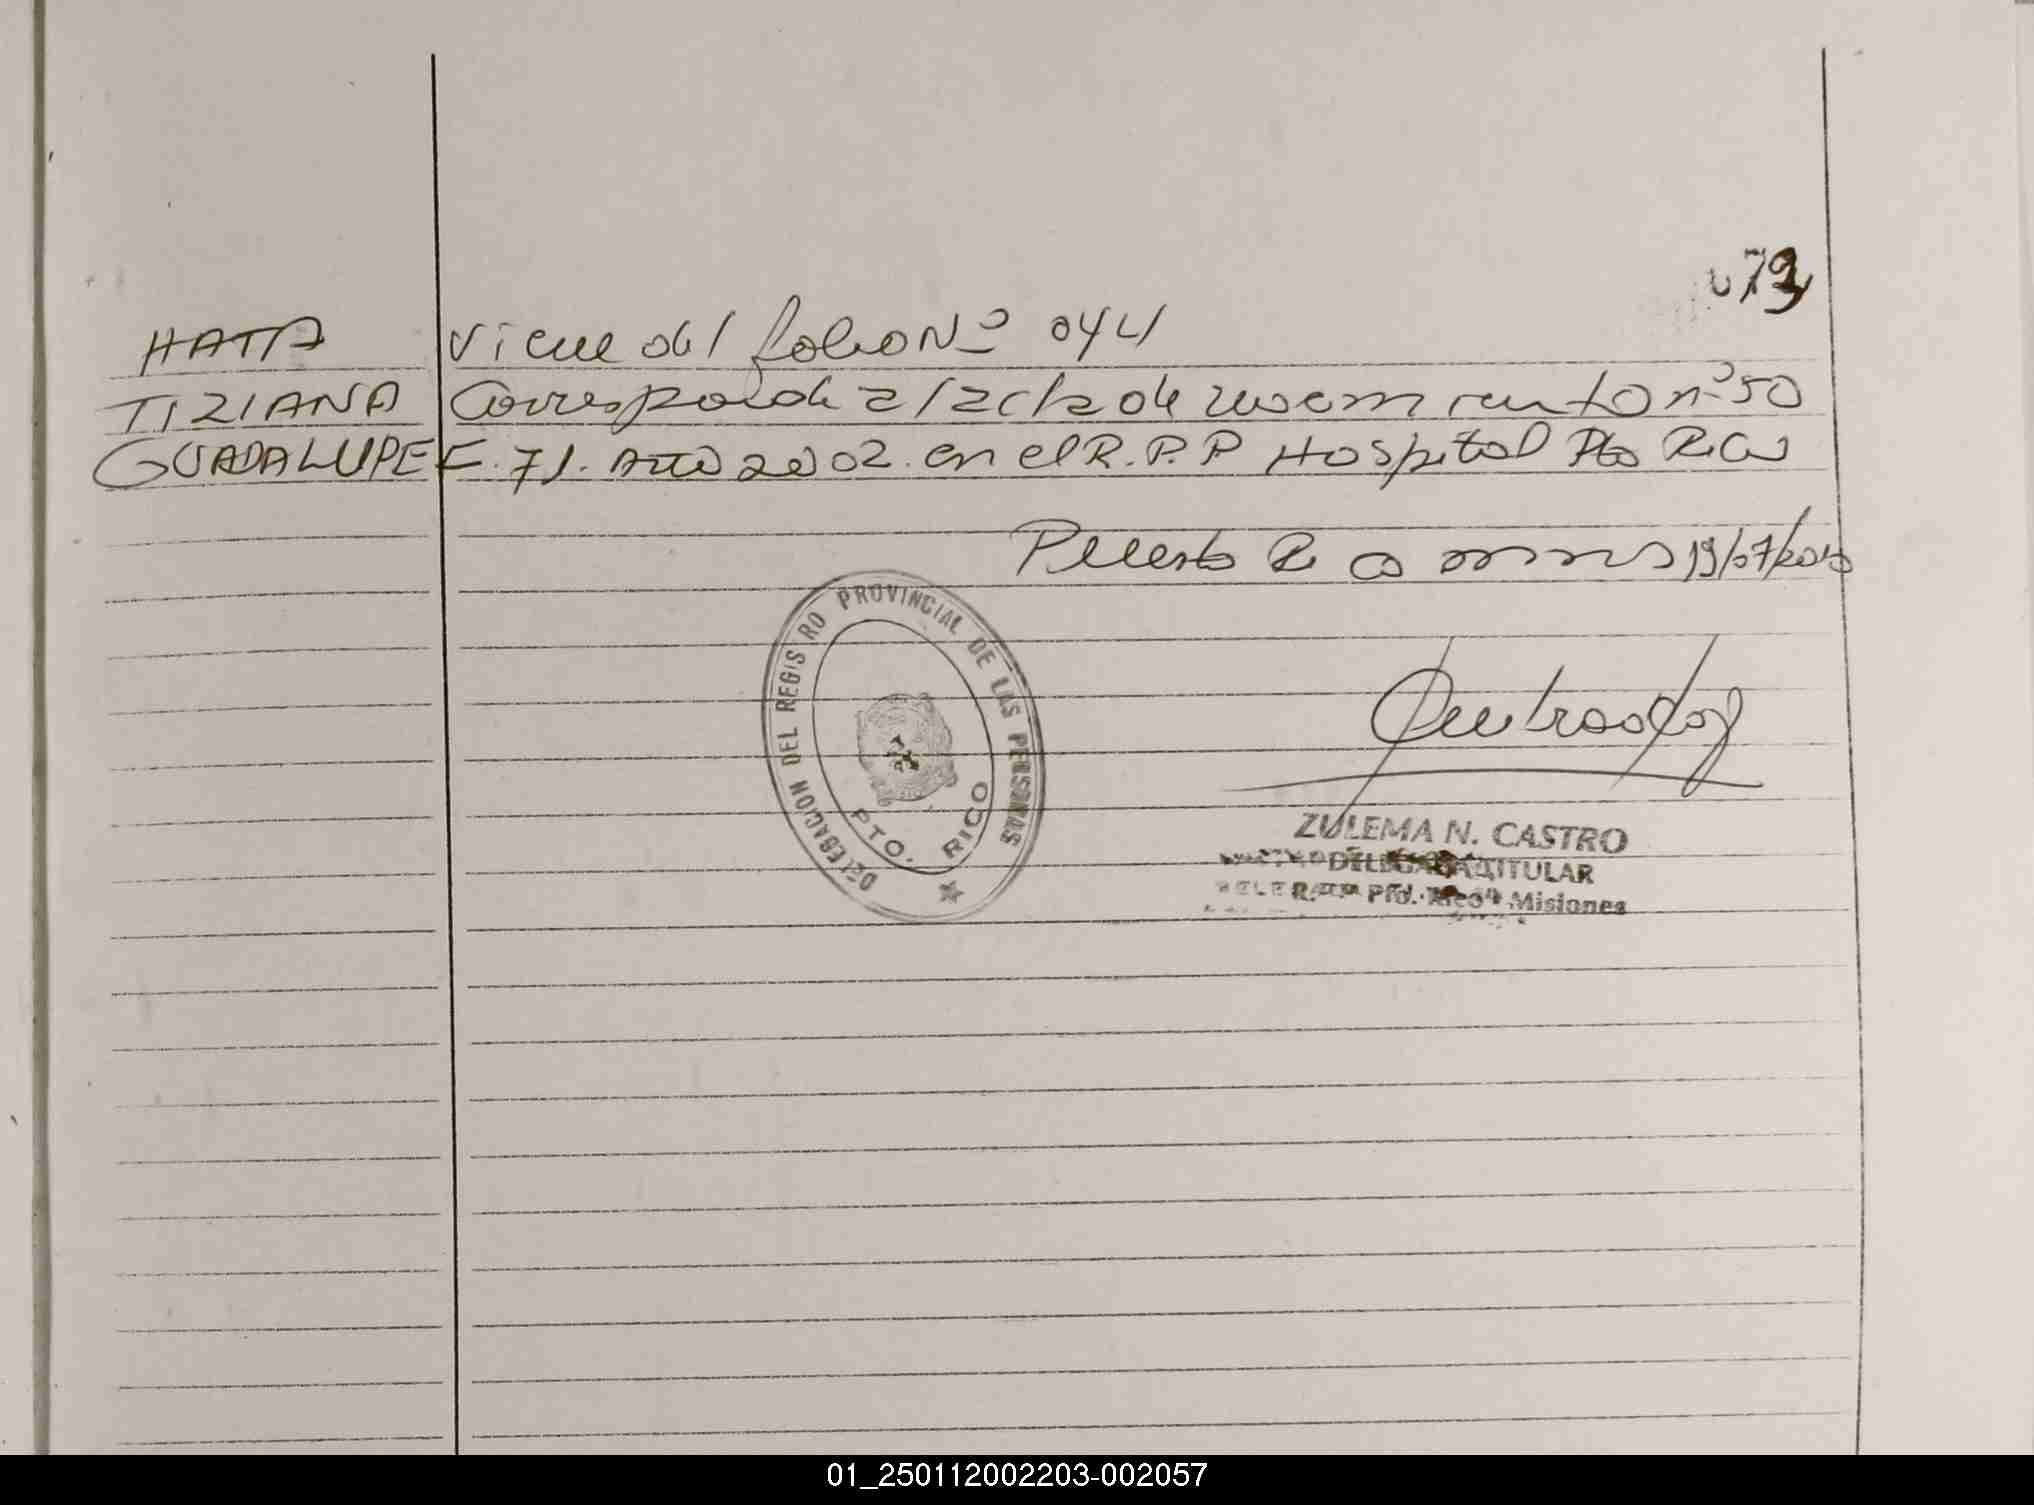 073
HATA Viene del folio Nº 044
TIZIANA Corresponde al acta de nacimiento nº 50
GUADALUPE F. 71. Año 2002. en el R.P.P Hospital Pto Rico
Puerto Rico mnes 19/07/2010
DELEGACION DEL REGISTRO PROVINCIAL DE LAS PERSONAS
PTO. RICO
ZULEMA N. CASTRO
DELEGADA TITULAR
Pto. Rico Misiones
01_250112002203-002057